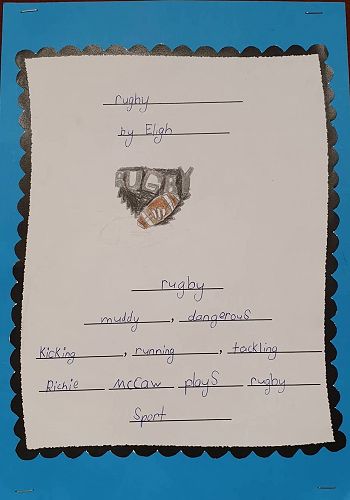 rugby
by Eligh
RUGBY
rugby
muddy, dangerous
Kicking, running, tackling
Richie McCaw plays rugby
Sport